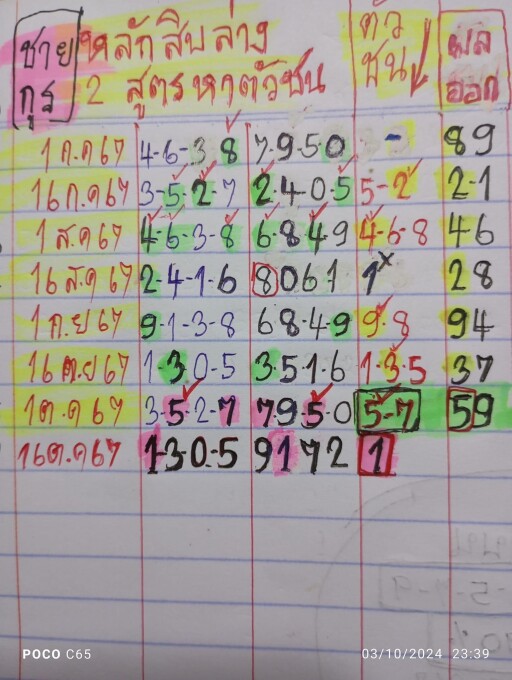 ชาย หลักสิบล่าง ตัว ผล
กูร 2 สูตรหาตัวชน ชน ออก
1 ก.ค 67 4-6-3-8 7-9-5-0 - 89
16 ก.ค 67 3-5-2-7 2-4-0-5 5-2 2-1
1 ส.ค 67 4-6-3-8 6-8-4-9 4-6-8 46
16 ส.ค 67 2-4-1-6 8061 1x 28
1 ก.ย 67 9-1-3-8 68-4-9 9-8 94
16 ต.ย 67 1-3-0-5 3516 1-3-5 37
1 ต.ค 67 3-5-2-7 79-5-0 5-7 59
16 ต.ค 67 1-3-0-5 9172 1
POCO C65 03/10/2024 23:39